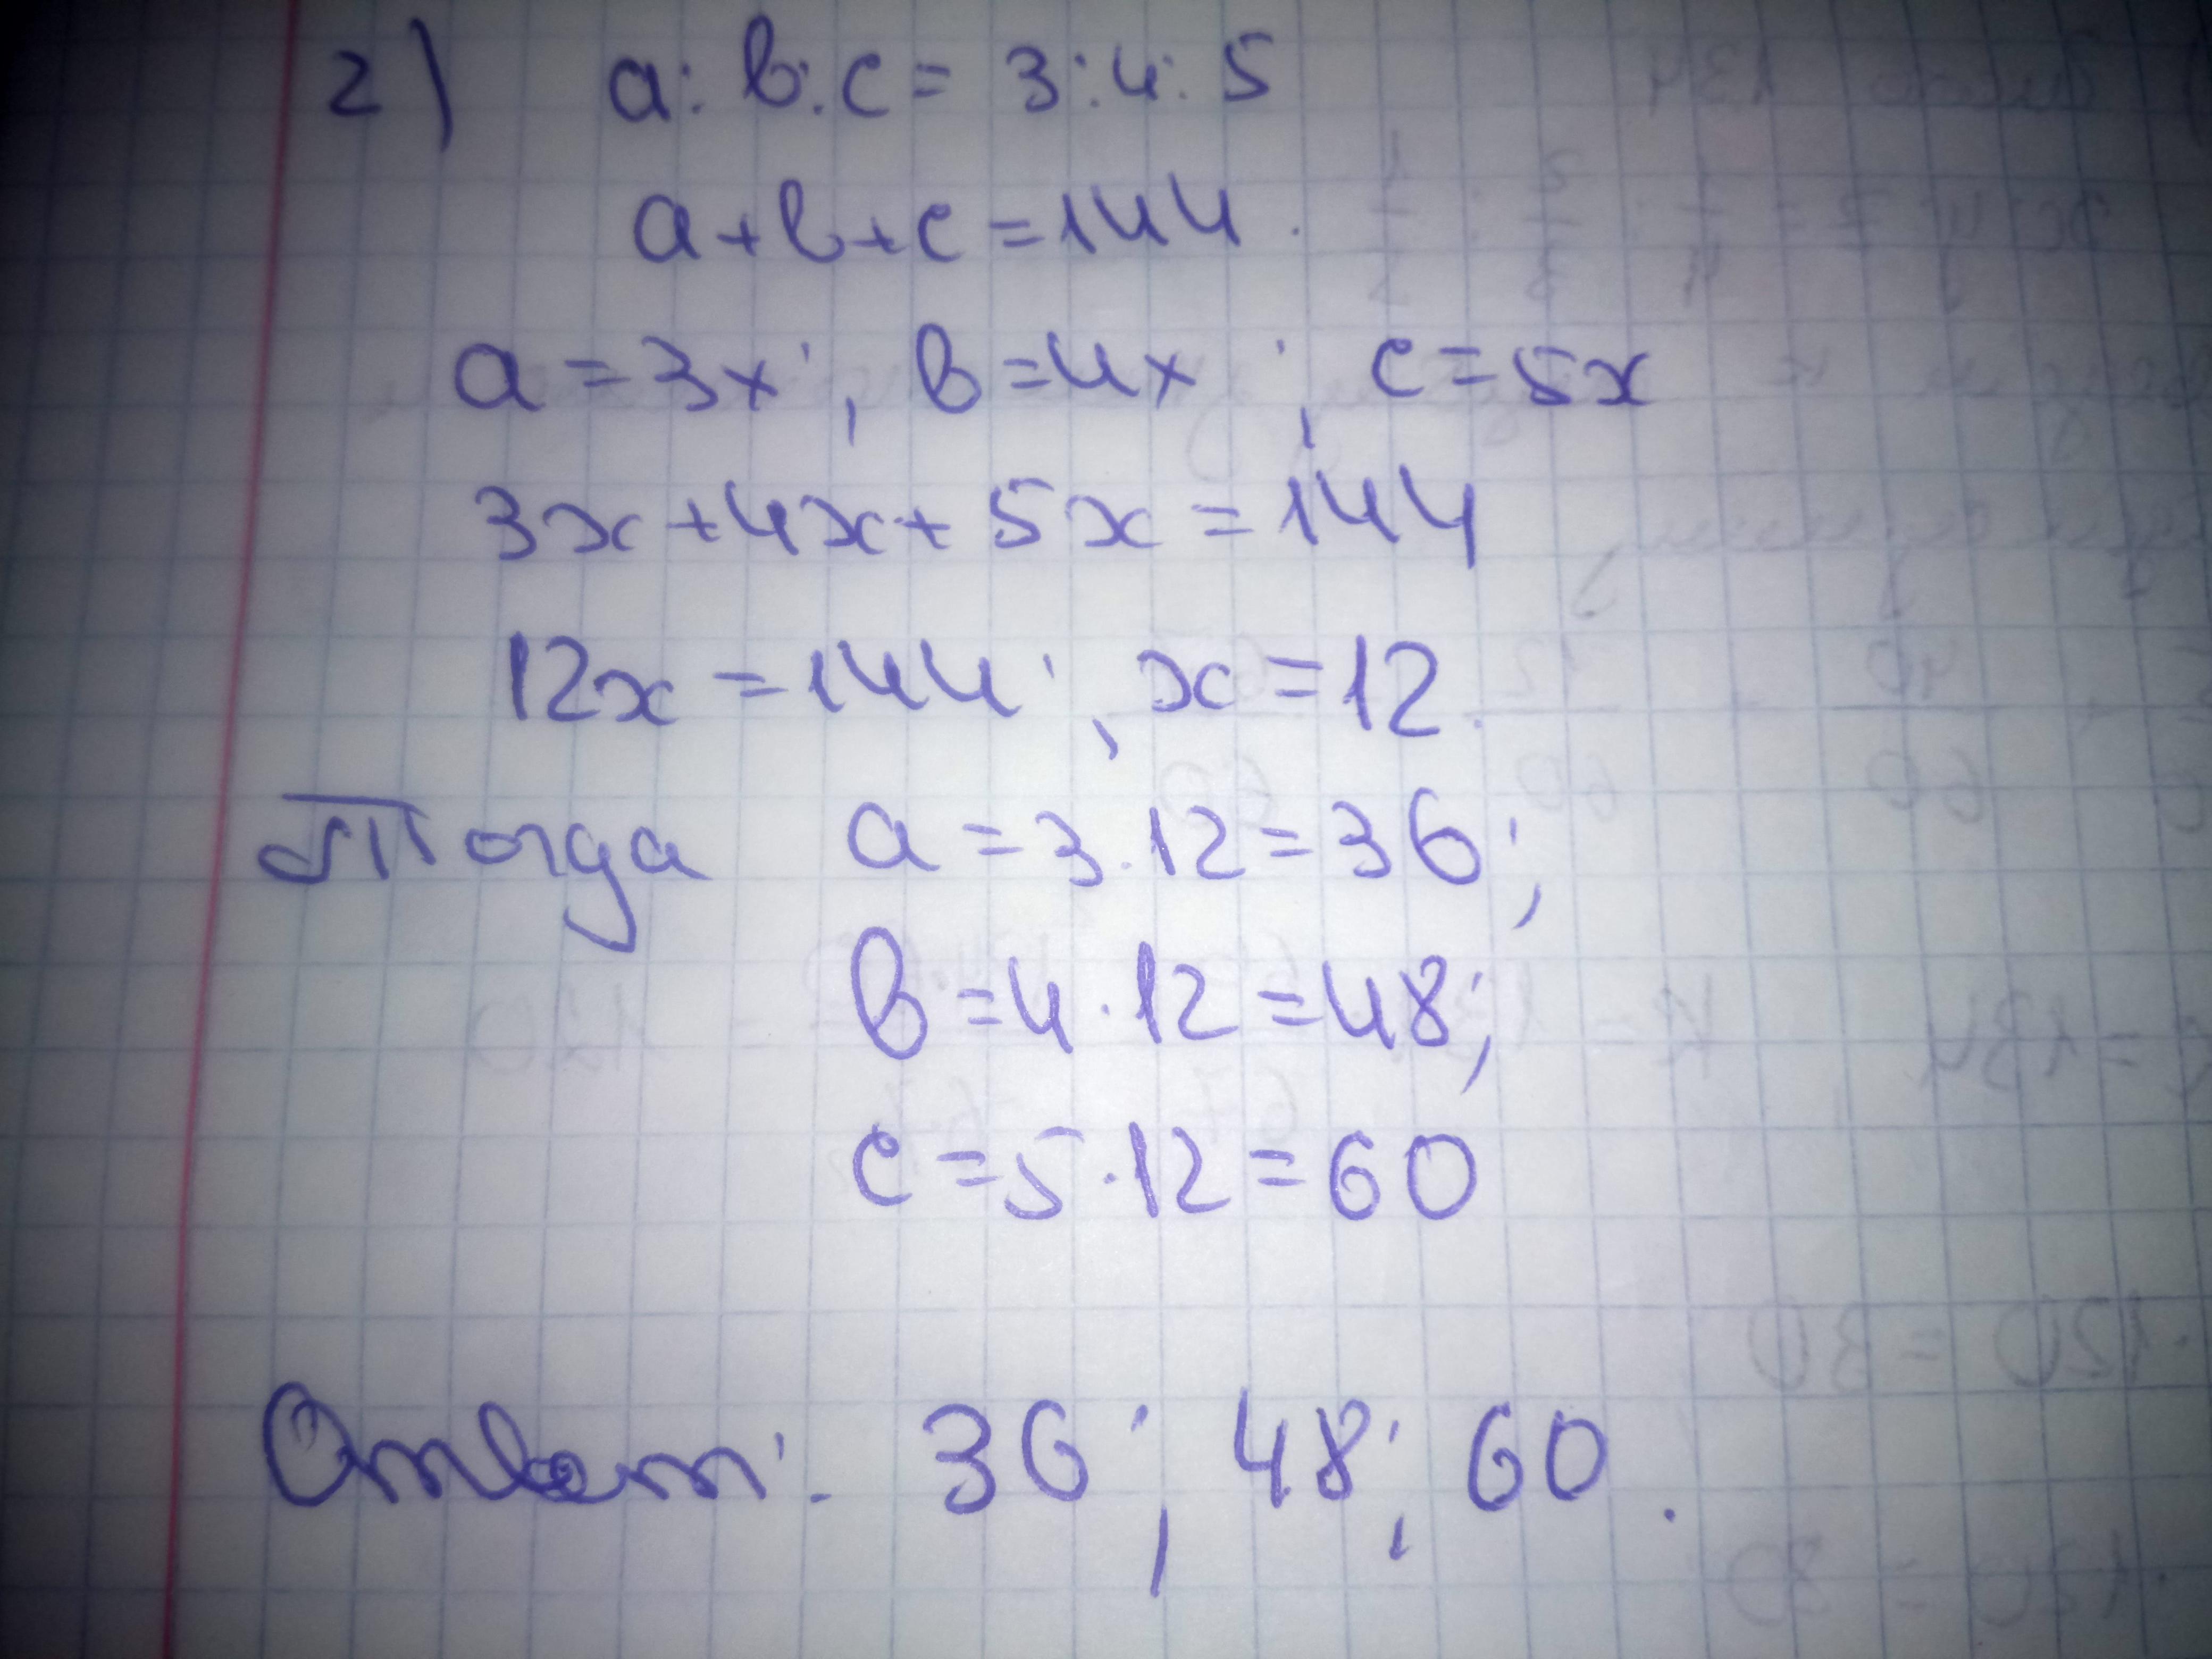 2) a:b:c=3:4:5
a+b+c=144.
a=3x; b=4x; c=5x
3x+4x+5x=144
12x=144; x=12.
Тогда a=3·12=36;
b=4·12=48;
c=5·12=60
Ответ: 36; 48; 60.